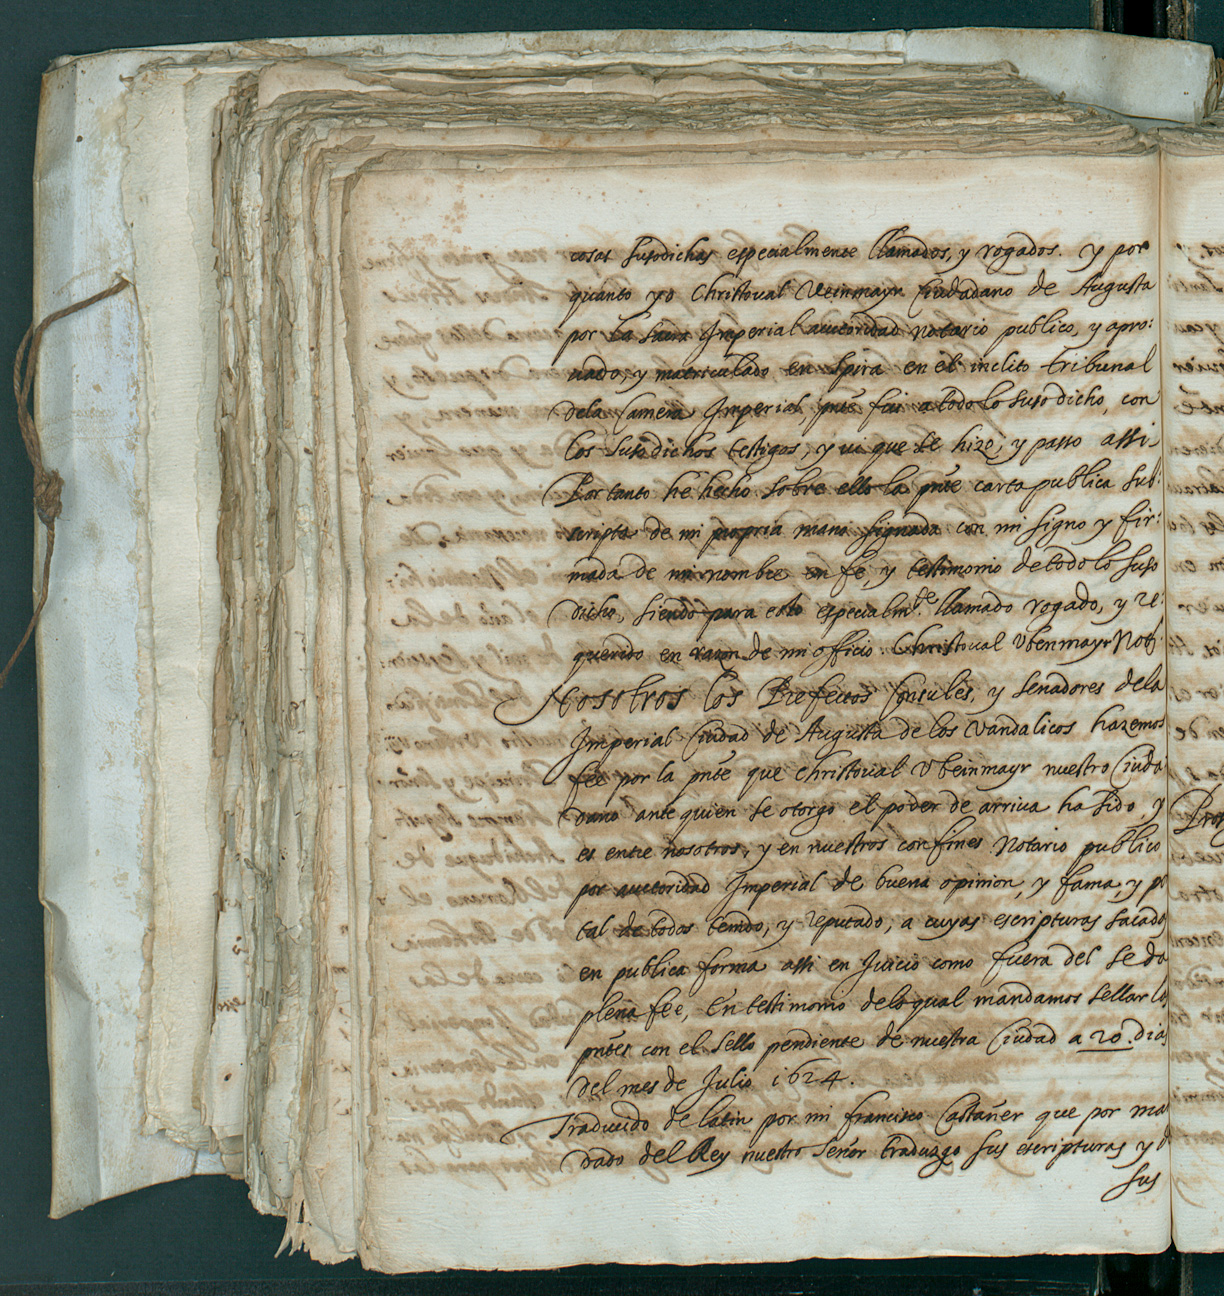 cosas susodichas especialmente llamados, y rogados. y por
quanto yo Christoual Veinmayr Ciudadano de Augusta
por la sacra Imperial auctoridad notario publico, y apro:
uado, y matriculado en Spira en el inclito tribunal
dela Camera Imperial, pnte fui a todo lo suso dicho, con
los susodichos testigos, y vi que se hizo, y passo assi
Por tanto he hecho sobre ello la pnte carta publica sub:
scripta de mi propria mano signada con mi signo y fir:
mada de mi nombre en fe, y testimonio de todo lo suso
dicho, siendo para esto especialmte. llamado rogado, y re:
querido en razon de mi officio. Christoual Vbenmayr Not:
Nosotros los Prefectos Consules, y senadores dela
Imperial Ciudad de Augusta de los Vandalicos hazemos
fee por la pnte que Christoual Vbeinmayr nuestro Ciuda
dano ante quien se otorgo el poder de arriua ha sido, y
es entre nosotros, y en nuestros confines Notario publico
por auctoridad Imperial de buena opinion, y fama, y p
tal de todos tenido, y reputado, a cuyas escripturas sacado
en publica forma assi en Juicio como fuera del se da
plena fee, En testimonio delo qual mandamos sellar los
pntes con el sello pendiente de nuestra Ciudad a 20. dias
del mes de Julio 1624.
Traducido de latin por mi francisco Castañer que por ma
dado del Rey nuestro señor traduzgo sus escripturas y d
sus
Prot